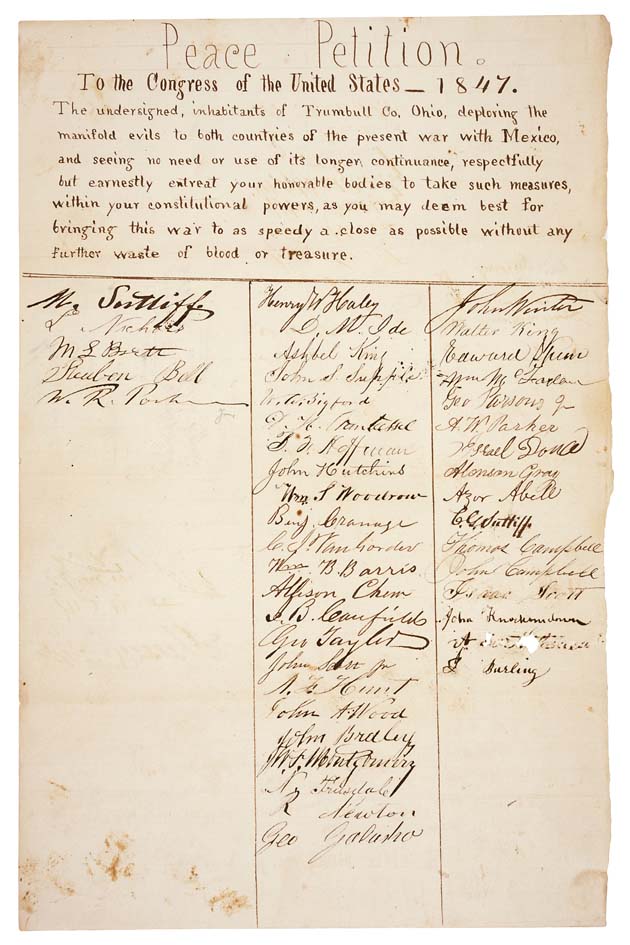 Peace Petition.
To the Congress of the United States — 1847.
The undersigned, inhabitants of Trumbull Co. Ohio, deploring the
manifold evils to both countries of the present war with Mexico,
and seeing no need or use of its longer continuance, respectfully
but earnestly entreat your honorable bodies to take such measures,
within your constitutional powers, as you may deem best for
bringing this war to as speedy a close as possible without any
further waste of blood or treasure.
Sutliff
L Nichols
Bell
W. R.
Henry W Haley
D. M. Ide
Ashbel King
John S.
W. A. Bigford
Hoffman
John Hutchins
Wm S Woodrow
Benj Cranage
C. S. VanGorder
Wm B Barris
Allison Chew
J. B. Canfield
Geo Taylor
John
Hunt
John A Wood
John Bradley
Montgomery
Trusdale
R Newton
Geo
John Winter
Walter King
Edward
Wm
Geo Parsons Jr
A. W. Parker
Alonson Gray
Azor Abell
C. G. Sutliff
Thomas Campbell
John Campbell
Isaac Scott
John
Darling